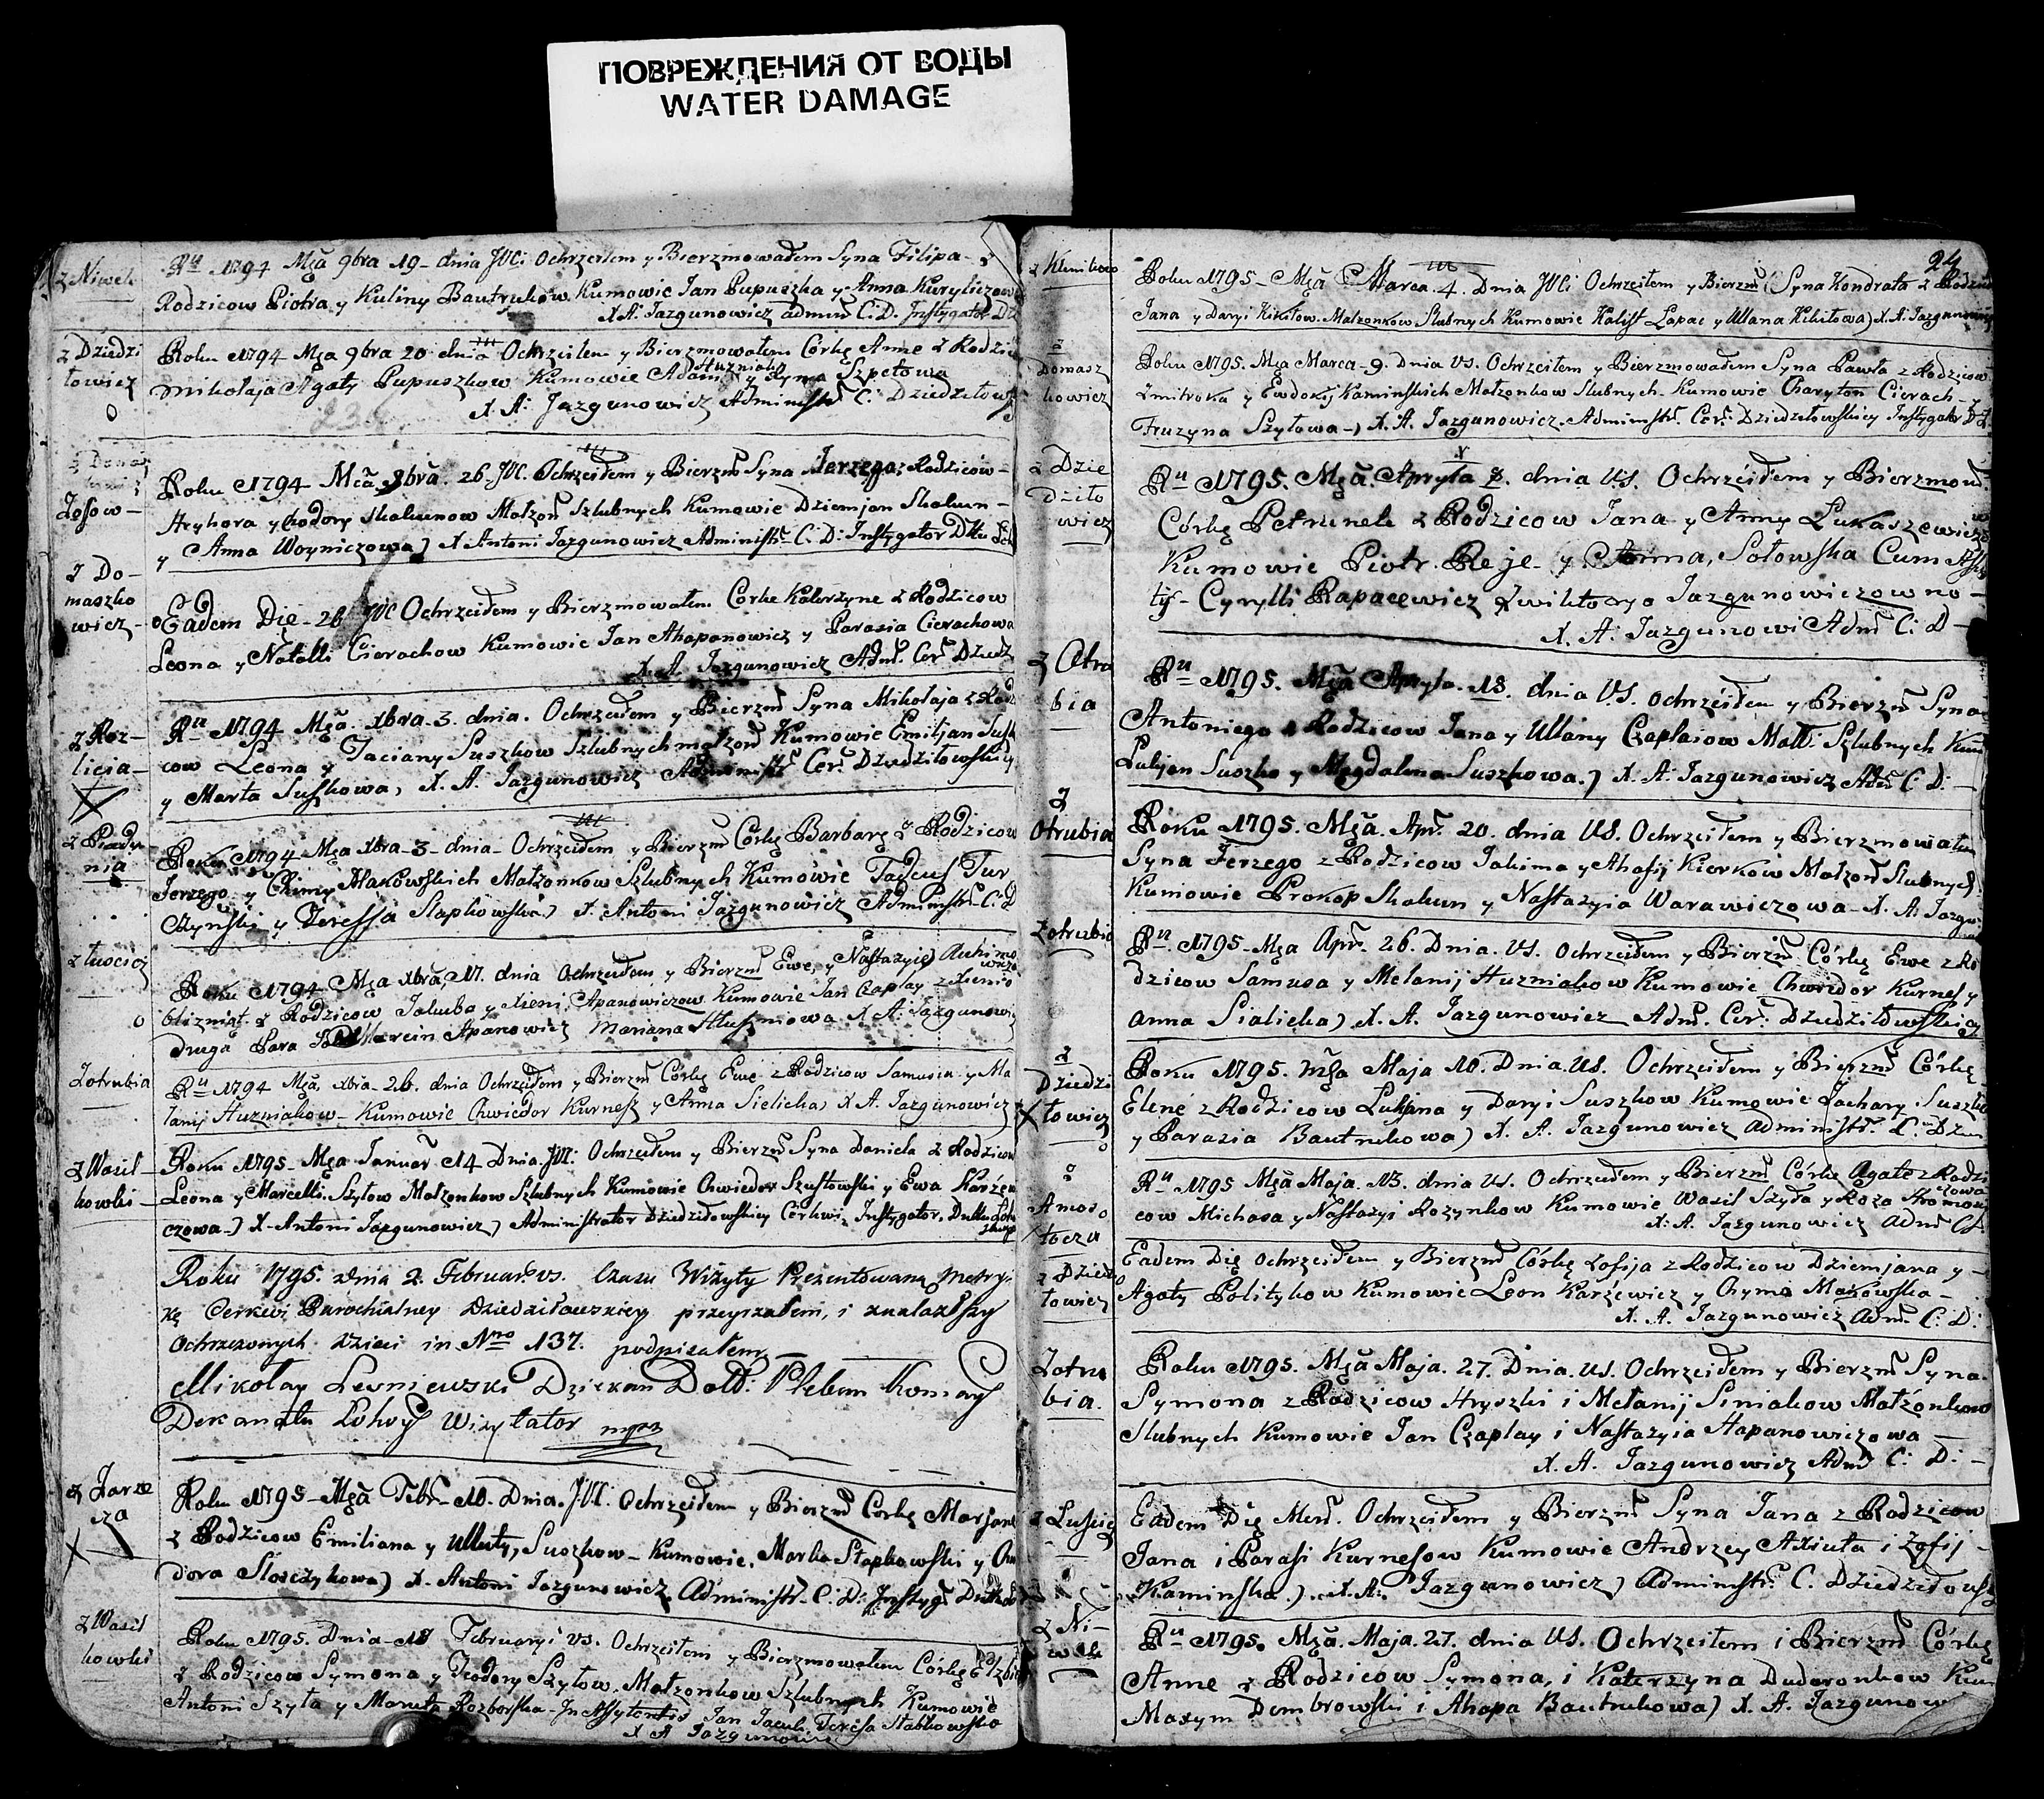 ПОВРЕЖДЕНИЯ ОТ ВОДЫ
WATER DAMAGE
z Niwek
Ru 1794 Mça 9bra 19 dnia JVC: Ochrzciłem y Bierzmowałem Syna Filipa z
Rodzicow Piotra y Kuliny Bautrukow Kumowie Jan Pupuszka y Anna
X A: Jazgunowicz admin C. D. Instygator
z Dziedzi
łowicz
Roku 1794 Mça 9bra 20 dnia Ochrzciłem y Bierzmowałem Córkę Anne z
Mikołaja Agaty Pupuszkow Kumowie Adam Huzniak y Szpetowa
X. A: Jazgunowicz Administr C: Dziedziłows
Josow
Roku 1794 Mca 9bra. 26. JVC. Ochrzciłem y Bierzm Syna Jerzego z Rodziców
Hryhora y Chodory Skakunow Małzon Szlubnych Kumowie Dziemjan Skakun
y Anna Woyniczowa) X Antoni Jazgunowicz Administr C: D: Instygator
z Do-
maszko
wicz
Eadem Die 26 JVC Ochrzciłem y Bierzmowałem Corke Katerzyne z Rodzicow
Leona y Natalli Cierachow Kumowie Jan Ahapanowicz y Parasia Cierachowa
X. A. Jazgunowicz Adm. Cer. Dziedz
z Roz-
licia
Ru 1794 Mça. Xbra. 3. dnia. Ochrzciłem y Bierzm Syna Mikołaja z Rodz
cow Leona y Taciany Suszkow Szlubnych małzon Kumowie Emilijan
y Marta Suszkowa, X. A. Jazgunowicz Administr Cer. Dziedziłowskiey
nia
Roku 1794 Mça Xbra 3 dnia Ochrzciłem y Bierzm Córkę Barbarę z Rodzicow
Jerzego y Chimy Makowskich Małzonkow Szlubnych Kumowie Tadeusz Tur
czynski y Teressa Słapkowska) X. Antoni Jazgunowicz Administr C: D
z Łuscicz
Roku 1794 Mça Xbra, 17. dnia Ochrzciłem y Bierzm Ewe, y Nastazyię
blizniąt z Rodzicow Jakuba y Xieni Apanowiczow Kumowie Jan Czaplay z Xienio
druga Para Marcin Apanowicz Mariana X A: Jazgunowi
Zotrubia
Ru 1794 Mça Xbra 26. dnia Ochrzciłem y Bierzm Córkę Ewe z Rodzicow Samusia y Ma
lanij Huzniakow Kumowie Chwiedor Kurnesz y Anna Sielicka) X A. Jazgunowicz
z Wasil
kowki
Roku 1795 Mça Januar 14 Dnia JVC: Ochrzciłem y Bierzm Syna Daniela z Rodzicow
Leona y Marcelli Szyłow Małzonkow Szlubnych Kumowie Chwiedor Szustowski y Ewa
czowa) X Antoni Jazgunowicz) Administrator Dziedziłowskiey Cerkwi, Instygator
Roku 1795. dnia 2. Februar. vs. Czasu Wizyty Prezentowaną Metry-
kę Cerkwi Parochialney Dziedziłowskiey przeyrzałem, i znalazłszy
Ochrzczonych Dzieci in Nro 137. podpisałem
Mikołay Lesniewski Dziekan
Dekanatu Wizytator mpp
z Zarze
cza
Roku 1795 Mça Febr 10. Dnia. JVC. Ochrzciłem y Bierzm Corkę Marjan
z Rodzicow Emiliana y Ulluty, Suszkow Kumowie, Marko Słapkowski y
dora X. Antoni Jazgunowicz Administr C. D: Instyg
z Wasil
kowki
Roku 1795. Dnia 18 Februaryi vs. Ochrzciłem y Bierzmowałem Córkę Elzbie
z Rodzicow Symona y Teodory Szyłow Małzonkow Szlubnych Kumowie
Antoni Szyła y Maruta Rozborska Jan Teresa Stabkowska
X A Jazgunowi
24
Roku 1795 Mça Marca 4. Dnia JVC: Ochrzciłem y Bierzm Syna Kondrata z
Jana y Daryi Kikitow Małzonkow Slubnych Kumowie Kalist Łapac y Ullana Kikitowa) X. A. Jazgunowicz
z
Domasz
kowicz
Roku 1795. Mça Marca 9. Dnia VS. Ochrzciłem y Bierzmowałem Syna Pawła z Rodzicow
Zmitroka y Ewdokij Kaminskich Małzonkow Slubnych Kumowie Charyton Cierach y
Fruzyna Szyłowa) X. A. Jazgunowicz. Administr. Cer. Dziedziłowskiey Instygator
z Dzie
dziło
wicz
Ru 1795. Mça. Apryla 8. dnia VS. Ochrzciłem y Bierzmow
Córkę Petrunele z Rodzicow Jana y Anny Łukaszewiczo
Kumowie Piotr Reje y Anna, Sołowska Cum
tij Cyrylli Rapacewicz z Wiktoryo Jazgunowiczowno
X. A: Jazgunowi Adm C: D
z Otru
bia
Ru 1795. Mça Apryla. 13. dnia VS. ochrzciłem y Bierzm Syna
Antoniego z Rodzicow Jana y Ullany Czaplaiow Małż Szlubnych Kum
Łukjan Suszko y Magdalena Suszkowa.) X. A: Jazgunowicz Adm C. D:
z
Otrubia
Roku 1795. Mça. Apr. 20. dnia VS. Ochrzciłem y Bierzmowałem
Syna Jerzego z Rodzicow Jakima y Ahafij Kierkow Małzon Slubnych
Kumowie Prokop Skakun y Nastazyia Warawiczowa X. A: Jazgu
Zotrubia
Ru 1795 Mça Apr. 26. Dnia. VS. ochrzciłem y Bierzm Córkę Ewe z Ro
dzicow Samusa y Melanij Huzniakow Kumowie Chwiedor Kurnesz y
anna Sialicka) X. A. Jazgunowicz Adm. Cer. Dziedziłowskiey
z
Dziedzi
łowicz
Roku 1795. Mça Maja 10. Dnia. VS. Ochrzciłem y Bierzm Córkę
Elenę z Rodzicow Łukjana y Daryi Suszkow Kumowie Zachary Suszko
y Parasia Bautrukowa) X. A. Jazgunowicz administr. C: Dzied
Ru 1795 Mça Maja. 13. dnia VS. Ochrzciłem y Bierzm Córkę Agate z Rodzi
cow Michasa y Nastazyi Rozynkow Kumowie Wasil Szyła y Roza
X. A. Jazgunowicz Adm C.
z Dziedzi
łowicz
Eadem Die ochrzciłem y Bierzm Córkę Zofija z Rodzicow Dziemjana y
Agaty Politykow Kumowie Leon Karżewicz y Chyma Makowska
X. A. Jazgunowicz Adm. C: D:
Zotru
bia.
Roku 1795. Mça Maja. 27. Dnia. VS. Ochrzciłem y Bierzm Syna.
Symona z Rodzicow Hryszki i Melanij Siniakow Małżonkow
Slubnych Kumowie Jan Czaplay i Nastazyia Hapanowiczowa
X. A. Jazgunowicz Adm C: D:
Eadem Die Ochrzciłem y Bierzm Syna Jana z Rodzicow
Jana i Parasi Kurnesow Kumowie Andrzey Axiuta i Zofij
Kaminska). X. A: Jazgunowicz) Administr. C. Dziedziłows
z Ni-
wek
Ru 1795. Mça. Maja. 27. dnia VS. Ochrzciłem i Bierzm Córkę
Anne z Rodzicow Symona, i Katerzyna Dudaronkow Kum
Maxym Dembrowski i Ahapa Bautrukowa) X. A. Jazgunow